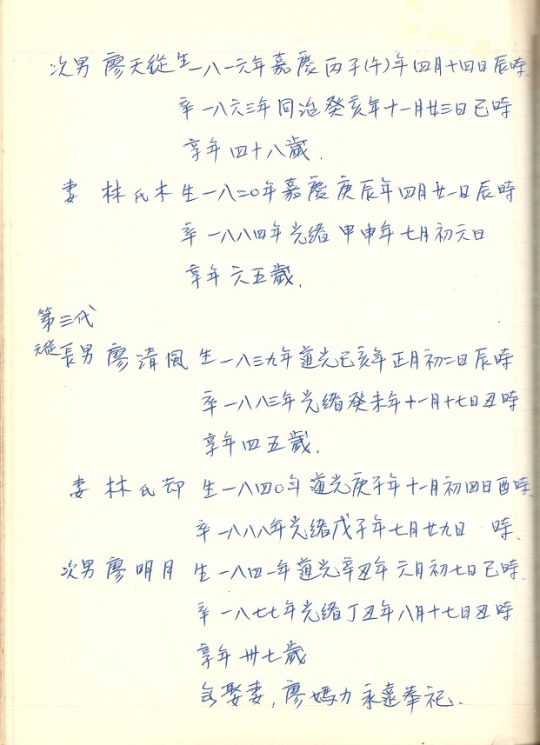 次男 廖天從 生一八一六年嘉慶丙子(午)年四月十四日辰時
卒一八六三年同治癸亥年十一月廿三日巳時
享年四十八歲.
妻 林氏木 生一八二〇年嘉慶庚辰年四月廿一日辰時
卒一八八四年光緒甲申年七月初六日
享年六五歲.
第三代
天從長男 廖清風 生一八三九年道光己亥年正月初二日辰時
卒一八八三年光緒癸未年十一月十七日丑時
享年四五歲.
妻 林氏却 生一八四〇年道光庚子年十一月初四日酉時
卒一八八八年光緒戊子年七月廿九日 時.
次男 廖明月 生一八四一年道光辛丑年六月初七日巳時
卒一八七七年光緒丁丑年八月十七日丑時
享年卅七歲
娶妻,廖媽力永遠奉祀.